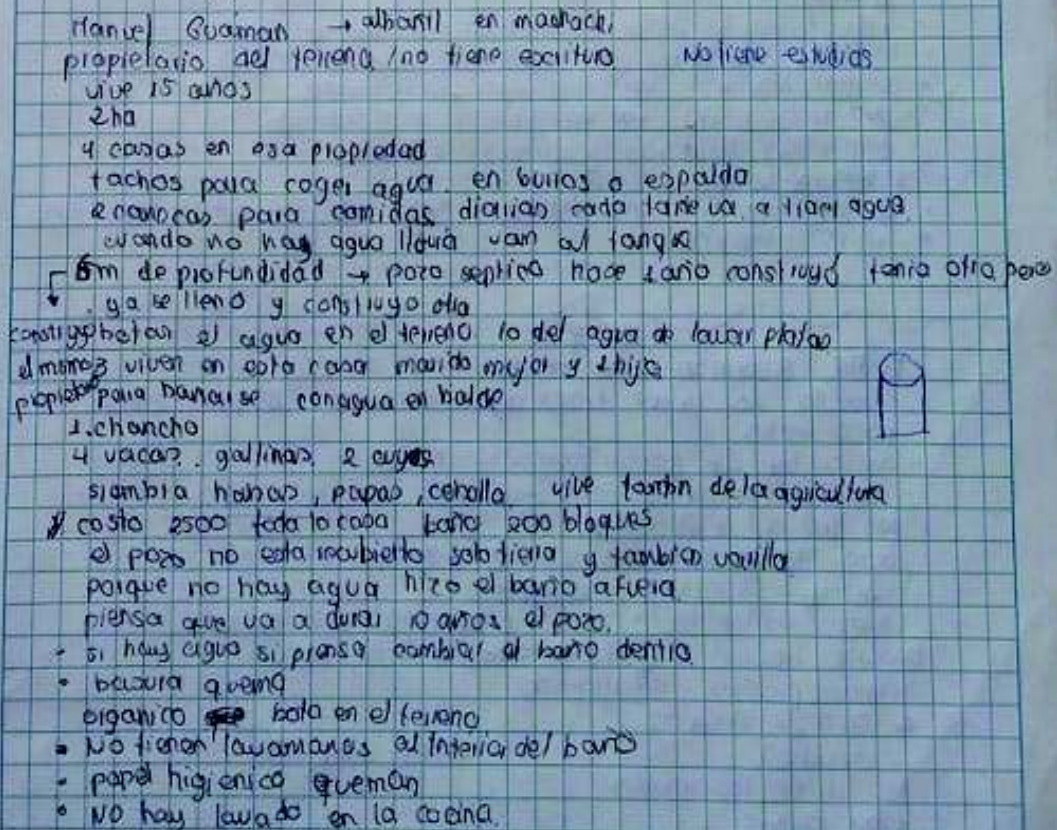 Manuel Guaman → albañil en machachi
propietario del terreno / no tiene escritura No tiene estudios
vive 15 años
2ha
4 casas en esa propiedad
tachos para coger agua en burros o espalda
2 canecas para comidas diarias cada tarde va a traer agua
cuando no hay agua lluvia van al tanque
6m de profundidad → pozo septico hace 1 año construyó tenia otra pero
ya se lleno y construyo otra
construyo botar el agua en el terreno lo del agua de lavar platos
el mismo 3 viven en esta casa marido mujer y 1 hijo
propietario para bañarse con agua en balde
1. chancho
4 vacas. gallinas. 2 cuyes
siembra habas, papas, cebolla vive tambn de la agricultura
costo 2500 toda la casa baño 200 bloques
el pozo no esta recubierto solo tierra y tambien varilla
porque no hay agua hizo el baño afuera
piensa que va a durar 10 años el pozo.
• si hay agua si piensa cambiar el baño dentro
• basura quema
organico bota en el terreno
• No tienen lavamanos al interior del baño
• papel higienico queman
• No hay lavado en la cocina.